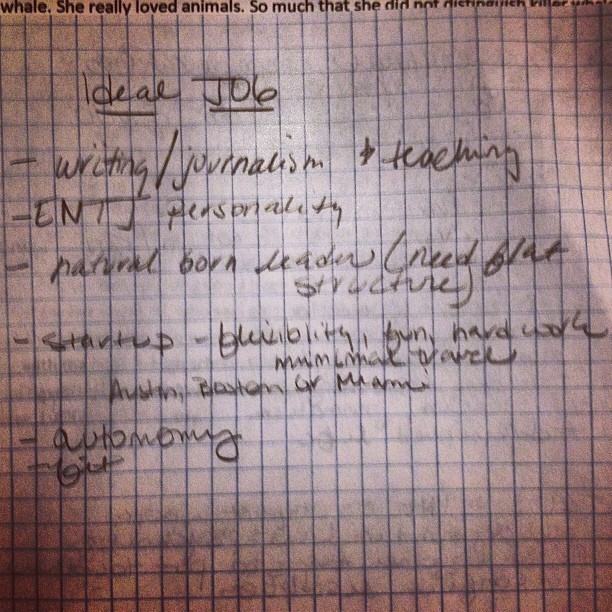 whale. She really loved animals. So much that she did not distinguish killer
Ideal JOb
- writing/journalism & teaching
- ENTJ personality
- natural born leader (need flat
structure)
- startup - flexiblity, fun, hard work
minimal travel
Austin, Boston or Miami
- autonomy
-